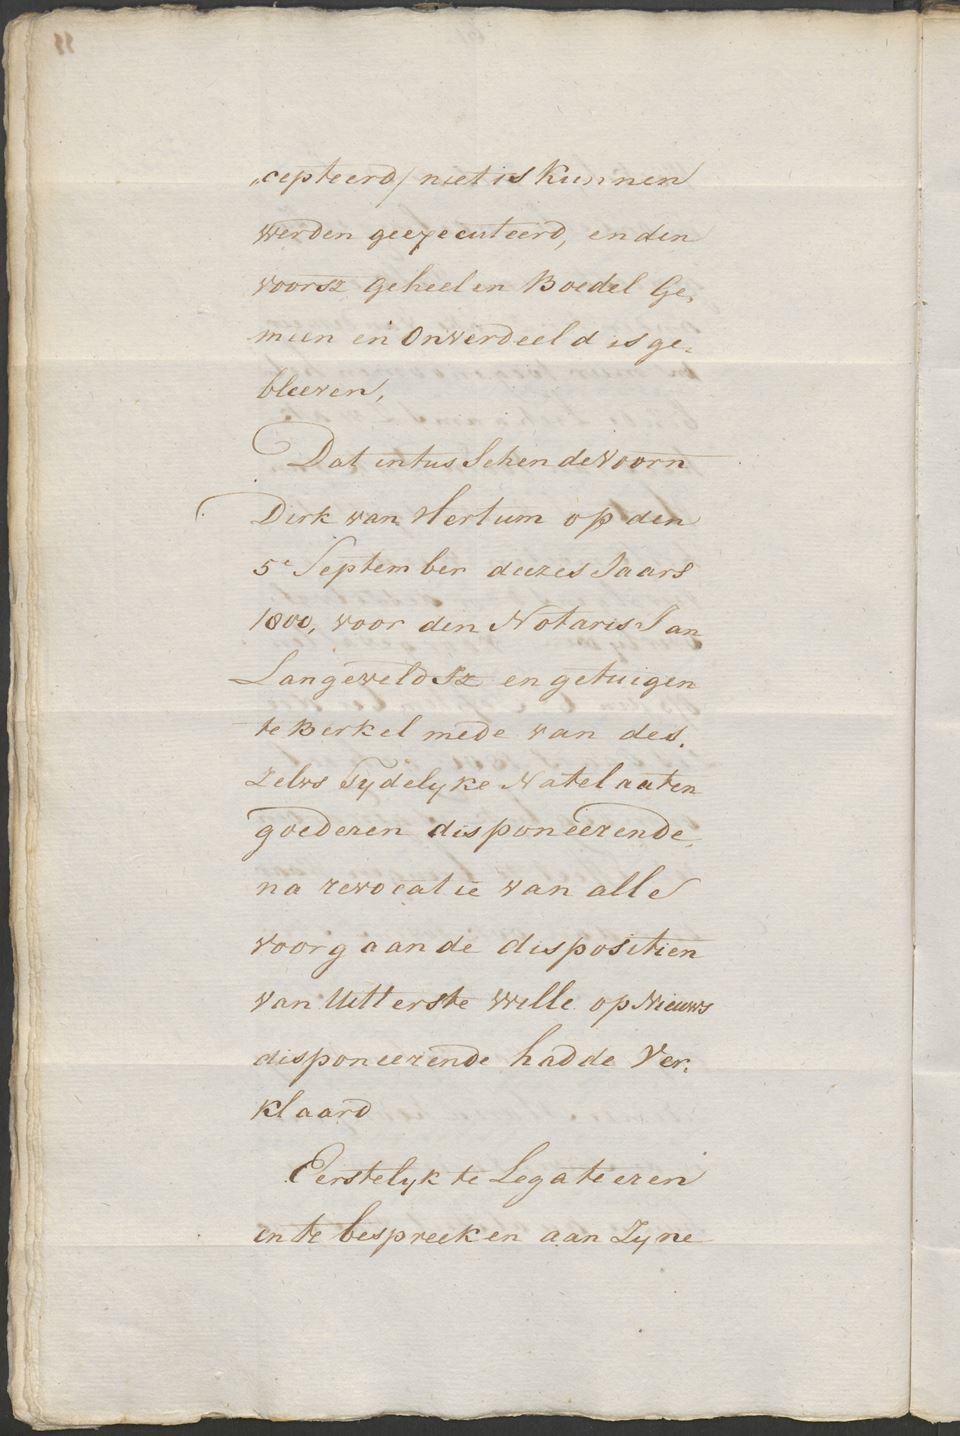 11
„cepteerd/ niet is kunnen
werden geexecuteerd, en den
voorsz geheelen Boedel Ge„
meen en Onverdeeld is ge„
bleeven,
Dat intusschen de voorn
Dirk van Hertum op den
5e September deezes Jaars
1800, voor den Notaris Jan
Langeveld Sz en getuigen
te Berkel mede van des„
zelvs Tydelyke Natelaaten
goederen disponeerende,
na revocatie van alle
voorgaande dispositien
van Uitterste wille op Nieuws
disponeerende hadde Ver„
klaard
Eerstelyk te Legateeren
en te bespreeken aan Zyne